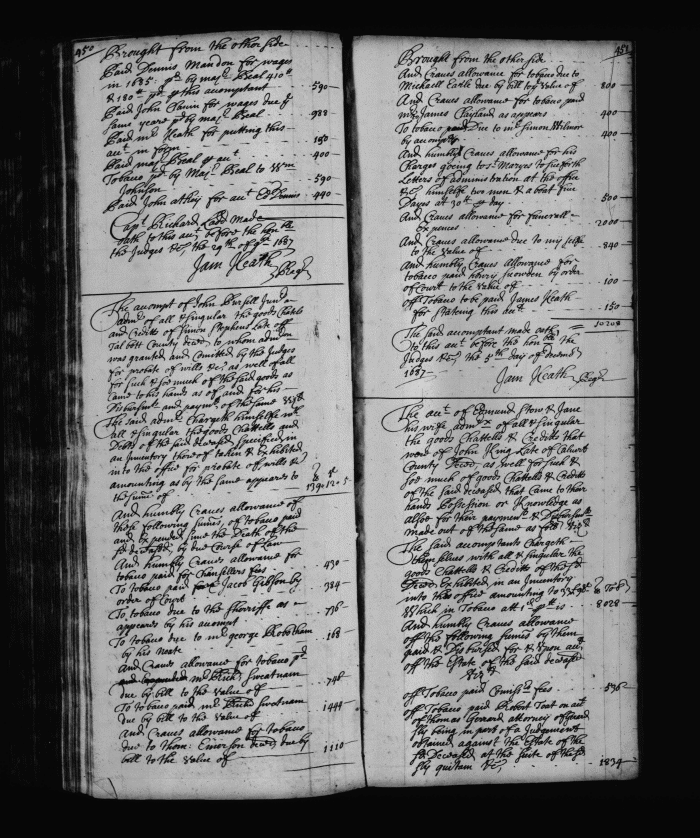 450
Brought from the other side
Paid Dennis Mandon for wages
in 1685: pd by majr Beal 410
& 180 pd this accomptant 590
Paid John Clavin for wages due ye
same yeare pd by majr Beal 988
Paid mr Heath for putting this
acct in form 150
Paid majr Beal acct 400
Tobacco pd by Majr Beal to Wm
Johnson 590
Paid John Athey for acct Ed Dennis 490
Capt Richard Ladd made
oath to this acct before the honble
the Judges &c the 29th of 9br 1687
Jam Heath Regr
The accompt of John
admr of all & singular the goods chatels
and Creditts of Simon Stephens late of
Talbott County decd to whom admcon
was granted and Comitted by the Judges
for probate of wills &c as well of all
for such & soe much of the said goods as
came to his hands as of and for his
Disbursmts and paymts of the same
The said admr Chargeth himselfe wth
all & singular the goods Chattells and
Debts of the said deceased specified in
an Inventory thereof taken & exhibited
into the office for probate of wills &c
amounting as by the same appears to
the sume of 139: 12: 5
And humbly Craves allowance of
these following sumes of tobacco paid
and expended since the Death of the
sd deceased by due Course of Law
And humbly Craves allowance for
tobacco paid for Chancellors fees 430
To tobacco paid Jacob Gibson by
order of Court 384
To tobacco due to the Sherriffe as
appeares by his accompt 736
To tobacco due to mr george Robotham
by his Noate 168
And Craves allowance for tobacco pd
mr Richd Sweatnam
due by bill to the value of 748
To tobacco paid mr Richd Sweatnam
due by bill to the value of 1444
And Craves allowance for tobacco
due to Thom: Emerson decd due by
bill to the value of 1110
451
Brought from the other side
And Craves allowance for tobacco due to
Michaell Earle due by bill to ye value of 800
And Craves allowance for tobacco paid
mr James Clayland as appears 400
To tobacco Due to mr Simon Wilmer
by accompt 400
And humbly Craves allowance for his
Charges going to St Maryes to sue forth
Letters of administration at the office
&c himselfe two men & a boat five
Dayes at 30th day 500
And Craves allowance for funerall
Expences 2000
And Craves allowance due to my selfe
to the value of 840
And humbly Craves allowance for
tobacco paid henry Snowden by order
of Court to the value of 100
off Tobacco to be paid James Heath
for stateing this acct 150
10208
The said accomptant made oath
to this acct before the honble the
Judges &c the 5th day of decembr
1687
Jam Heath Regr
The acct of Edmund Stow & Jane
his wife admrx of all & singular
the goods Chattells & Creditts that
were of John King Late of Calvert
County Decd as well for such &
soe much of goods Chattells & Creditts
of the said deceased that came to their
hands Possession or Knowledge as
alsoe for their paymts & Disbursmts
made out of the same as foll: vizt
The said accomptants Chargeth
themselves with all & singular the
goods Chattells & Creditts of the sd
Decd Exhibited in an Inventory
into this office amounting to
Which in Tobacco at is 8028
And humbly Craves allowance
off the following sumes by them
paid & Disbursed for & upon acct
off the Estate of the said deceased
vizt
off Tobacco paid Comissrs fees 536
off Tobacco paid Robert Toat on acct
of Thomas Gerrard attorney of Gerard
Sly being in part of a Judgement
obtained against the Estate of the
sd Deceased at the suite of the sd
Sly quitam &c 1834